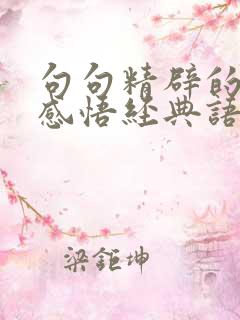 句句精辟的
感悟经典語
梁鉅坤